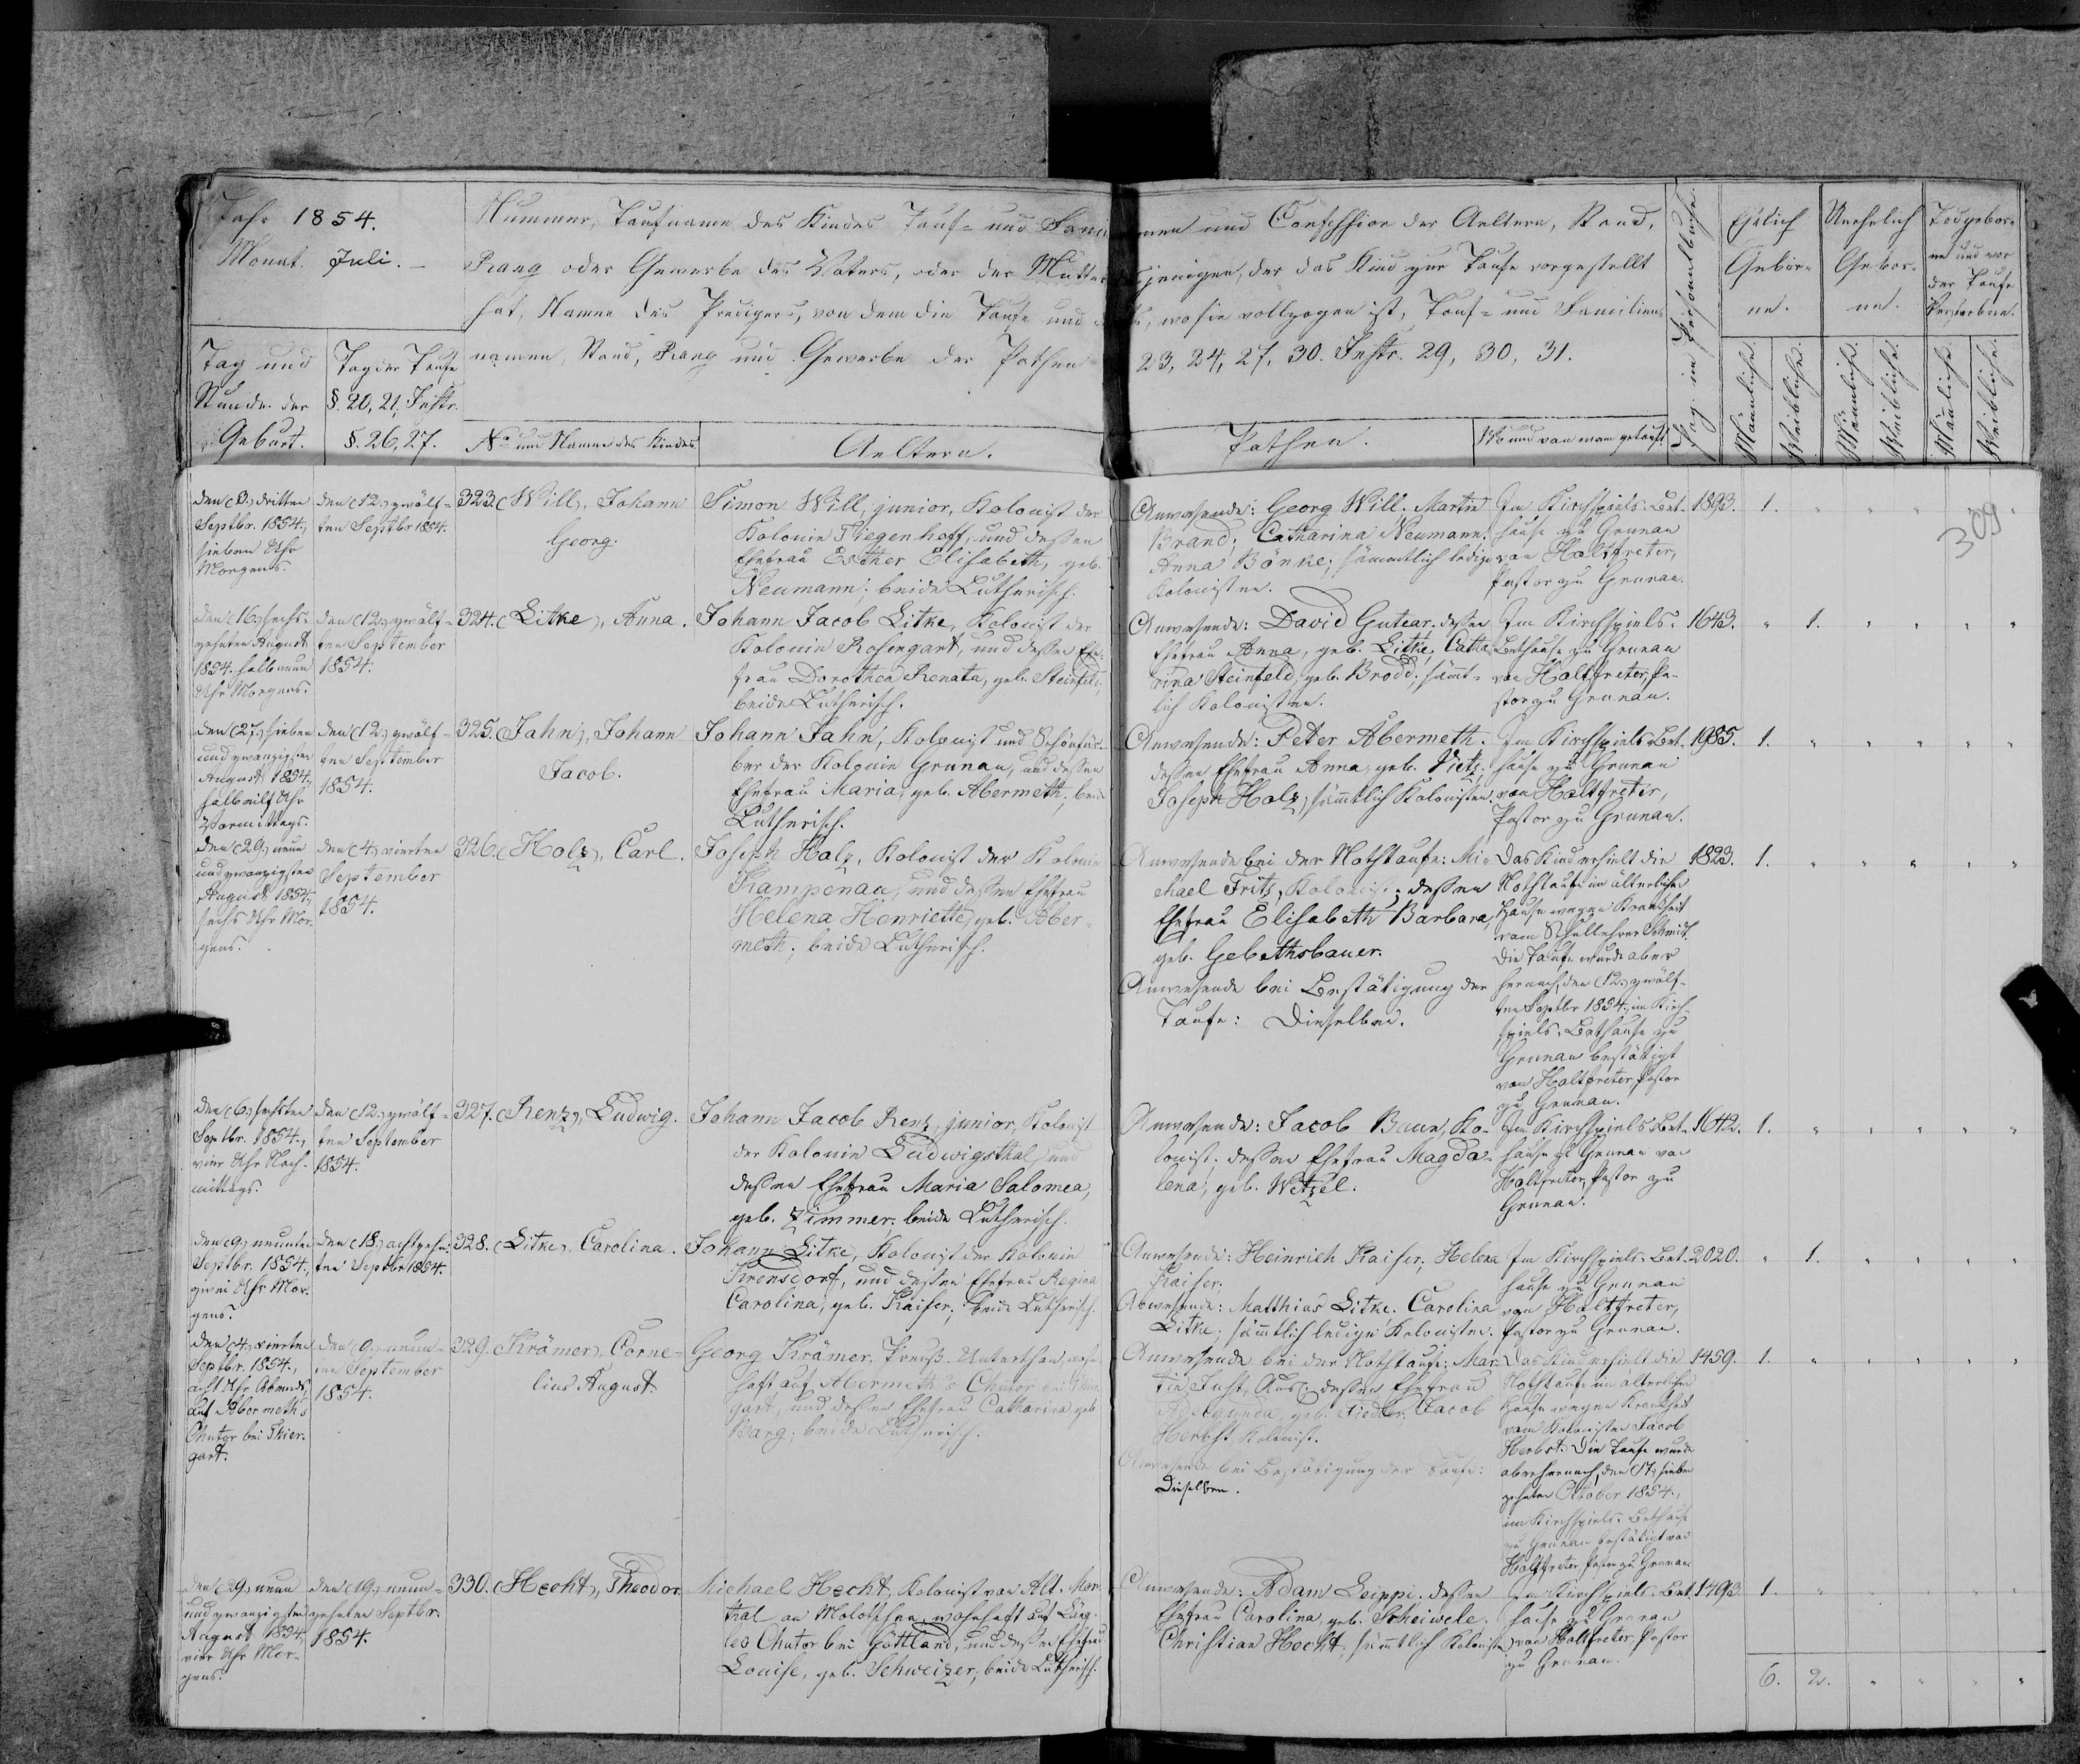 Jahr 1854.
Monat. Juli. –
Tag und
Stunde der
Geburt.
Tag der Taufe
§. 20, 21, Instr.
§. 26, 27.
Nummer, Taufname des Kindes Tauf- und Fami
Rang oder Gewerbe des Vaters, oder der Mutter
hat, Namen des Predigers, von dem die Taufe und
namen, Stand, Rang und Gewerbe der Pathen
No und Namen des Kindes
Aeltern.
men und Confession der Aeltern, Stand,
jenigen, der das Kind zur Taufe vorgestellt
wo sie vollzogen ist, Tauf- und Familien
23, 24, 27, 30. Instr. 29, 30, 31.
Pathen.
Wo und von wem getauft.
Pag. im Personalbuche.
Ehelich
Gebor-
ne.
Unehelich
Gebor-
ne.
Todgebor-
ne und vor
der Taufe
Verstorbne.
Männliche.
Weibliche.
Männliche.
Weibliche.
Männliche.
Weibliche.
309
den (3.) dritten
Septbr. 1854.,
sieben Uhr
Morgens.
den (12.) zwölf-
ten Septbr 1854.
323. (Will), Johann
Georg.
Simon Will, junior, Kolonist der
Kolonie Tiegenhoff, und dessen
Ehefrau Esther Elisabeth, geb.
Neumann; beide Lutherisch.
Anwesende: Georg Will. Martin
Brand; Catharina Neumann.
Anna Bönke; sämmtlich ledige
Kolonisten.
Im Kirchspiels-Bet-
hause zu Grunau
von Holtfreter,
Pastor zu Grunau.
1893.
1.
den (16.) sechs-
zehnten August
1854. halb neun
Uhr Morgens.
den (12.) zwölf-
ten September
1854.
324. (Litke), Anna.
Johann Jacob Litke, Kolonist der
Kolonie Rosengart, und dessen Ehe-
frau Dorothea Renata, geb. Steinfeld;
beide Lutherisch.
Anwesende: David Gutear. dessen
Ehefrau Anna, geb. Litke. Catha-
rina Steinfeld, geb. Brodd; sämt-
lich Kolonisten.
Im Kirchspiels-
Bethause zu Grunau
von Holtfreter, Pa-
stor zu Grunau.
1643.
1.
den (27.) sieben
und zwanzigsten
August 1854,
halb eilf Uhr
Vormittags.
den (12.) zwölf-
ten September
1854.
325. (Jahn), Johann
Jacob.
Johann Jahn, Kolonist und Schönfär-
ber der Kolonie Grunau, und dessen
Ehefrau Maria, geb. Abermeth; beide
Lutherisch.
Anwesende: Peter Abermeth.
dessen Ehefrau Anna, geb. Vietz;
Joseph Holz; sämmtlich Kolonisten.
Im Kirchspiels Bet-
hause zu Grunau
von Holtfreter,
Pastor zu Grunau.
1985.
1.
den (29.) neun
und zwanzigsten
August 1854,
sechs Uhr Mor-
gens.
den (4.) vierten
September
1854.
326. (Holz), Carl.
Joseph Holz, Kolonist der Kolonie
Kampenau, und dessen Ehefrau
Helena Henriette, geb. Aber-
meth; beide Lutherisch.
Anwesende bei der Nothtaufe: Mi-
chael Fritz, Kolonist; dessen
Ehefrau Elisabeth Barbara,
geb. Gebethsbauer.
Anwesende bei Bestätigung der
Taufe: Dieselben.
Das Kind erhielt die
Nothtaufe im älterlichen
Hause wegen Krankheit
vom Schullehrer Schmidt.
Die Taufe wurde aber
hernach, den (12.) zwölf-
ten Septbr 1854., im Kirch-
spiels-Bethause zu
Grunau bestätigt
von Holtfreter, Pastor
zu Grunau.
1823.
1.
den (6.) sechsten
Septbr. 1854.,
vier Uhr Nach-
mittags.
den (12.) zwölf-
ten September
1854.
327. (Renz), Ludwig.
Johann Jacob Renz, junior, Kolonist
der Kolonie Ludwigsthal, und
dessen Ehefrau Maria Salomea,
geb. Zimmer. beide Lutherisch.
Anwesende: Jacob Baun, Ko-
lonist; dessen Ehefrau Magda-
lena, geb. Wetzel.
Im Kirchspiels Bet-
hause zu Grunau von
Holtfreter, Pastor zu
Grunau.
1642.
1.
den (9.) neunten
Septbr. 1854.,
zwei Uhr Mor-
gens.
den (18.) achtzehn-
ten Septbr 1854.
328. (Litke), Carolina.
Johann Litke, Kolonist der Kolonie
Kronsdorf, und dessen Ehefrau Regina
Carolina, geb. Kaiser; beide Lutherisch.
Anwesende: Heinrich Kaiser; Helena
Kaiser;
Abwesende: Matthias Litke. Carolina
Litke; sämmtlich ledige Kolonisten.
Im Kirchspiels-Bet-
hause zu Grunau
von Holtfreter,
Pastor zu Grunau.
2020.
1.
den (4.) vierten
Septbr. 1854.,
acht Uhr Abends,
auf Abermeth's
Chutor bei Thier-
gart.
den (9.) neun-
ten September
1854.
329. (Krämer), Corne-
lius August.
Georg Krämer, Preuß. Unterthan, wohn-
haft auf Abermeth's Chutor bei Thier-
gart, und dessen Ehefrau Catharina geb.
Warg; beide Lutherisch.
Anwesende bei der Nothtaufe: Mar-
tin Juhst, dessen Ehefrau
geb. Fiedler. Jacob
Herbst, Kolonist.
Anwesende bei Bestätigung der Taufe:
Dieselben.
Das Kind erhielt die
Nothtaufe im älterlichen
Hause wegen Krankheit
vom Kolonisten Jacob
Herbst. Die Taufe wurde
aber hernach, den (17.) sieben
zehnten October 1854.,
im Kirchspiels-Bethause
zu Grunau bestätigt von
Holtfreter, Pastor zu Grunau.
1459.
1.
den (29.) neun
und zwanzigsten
August 1854,
vier Uhr Mor-
gens.
den (19.) neun-
zehnten Septbr.
1854.
330. (Hecht), Theodor.
Michael Hecht, Kolonist von Alt-Mon-
thal an Molotschna, wohnhaft auf
Chutor bei Göttland, und dessen Ehefrau
Louise, geb. Schweizer; beide Lutherisch.
Anwesende: Adam Leippi. dessen
Ehefrau Carolina, geb. Scheiwele.
Christian Hecht; sämmtlich Kolonisten.
Im Kirchspiels-Bet-
hause zu Grunau
von Holtfreter, Pastor
zu Grunau.
1493.
1.
6. 2.